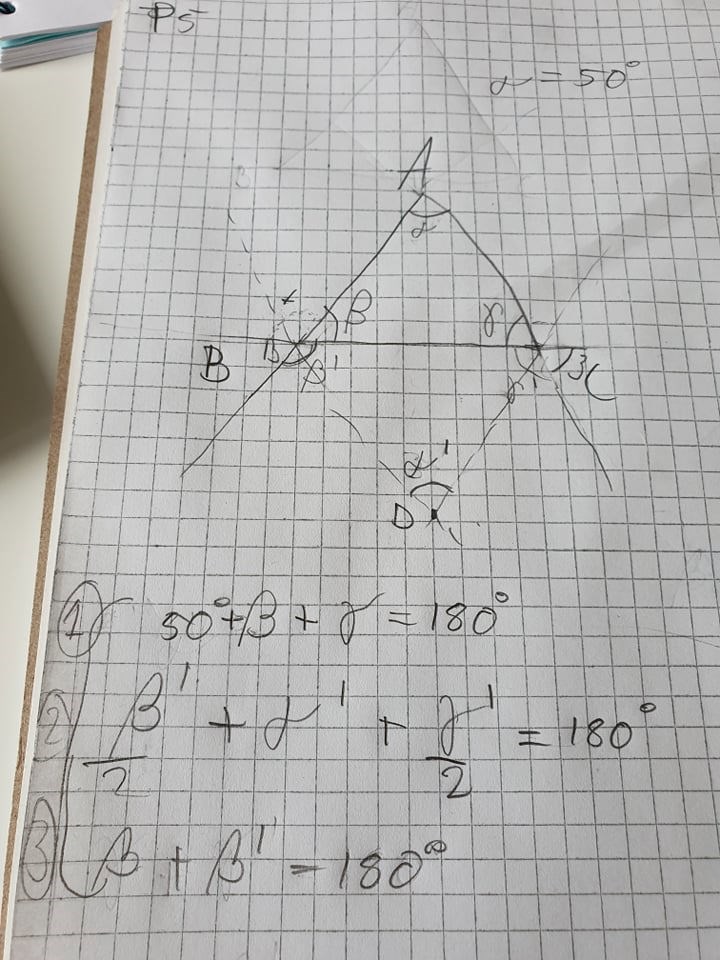 P5
α = 50°
A
α
β
γ
B
β
β'
γ'
C
α'
D
1) 50° + β + γ = 180°
2) β'/2 + α' + γ'/2 = 180°
3) β + β' = 180°